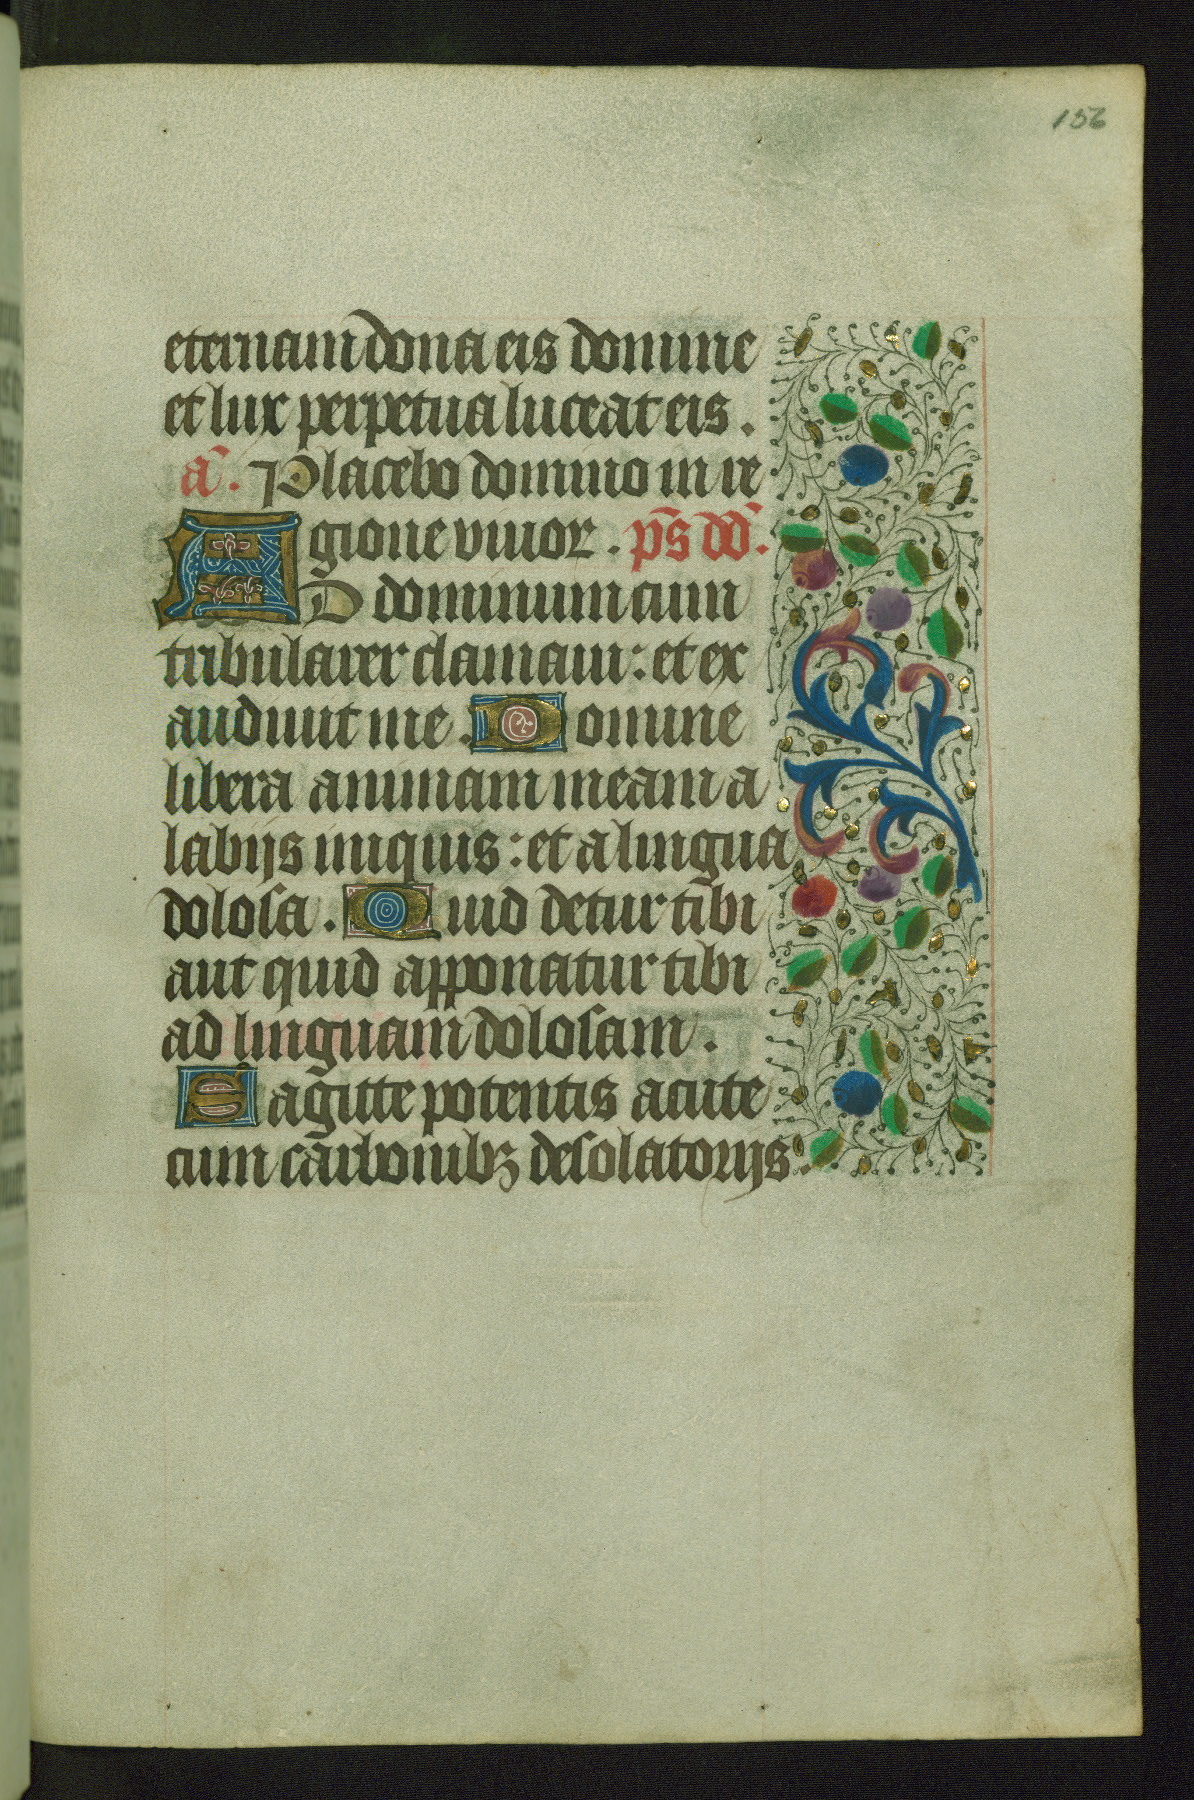 156
eternam dona eis domine
et lux perpetua luceat eis.
a͞. Placebo domino in re
gione viuoꝝ. p͞s dd͞.
AD dominum cum
tribularer clamaui: et ex
audiuit me. Domine
libera animam meam a
labijs iniquis: et a lingua
dolosa. Quid detur tibi
aut quid apponatur tibi
ad linguam dolosam.
Sagitte potentis acute
cum carbonibꝫ desolatorijs